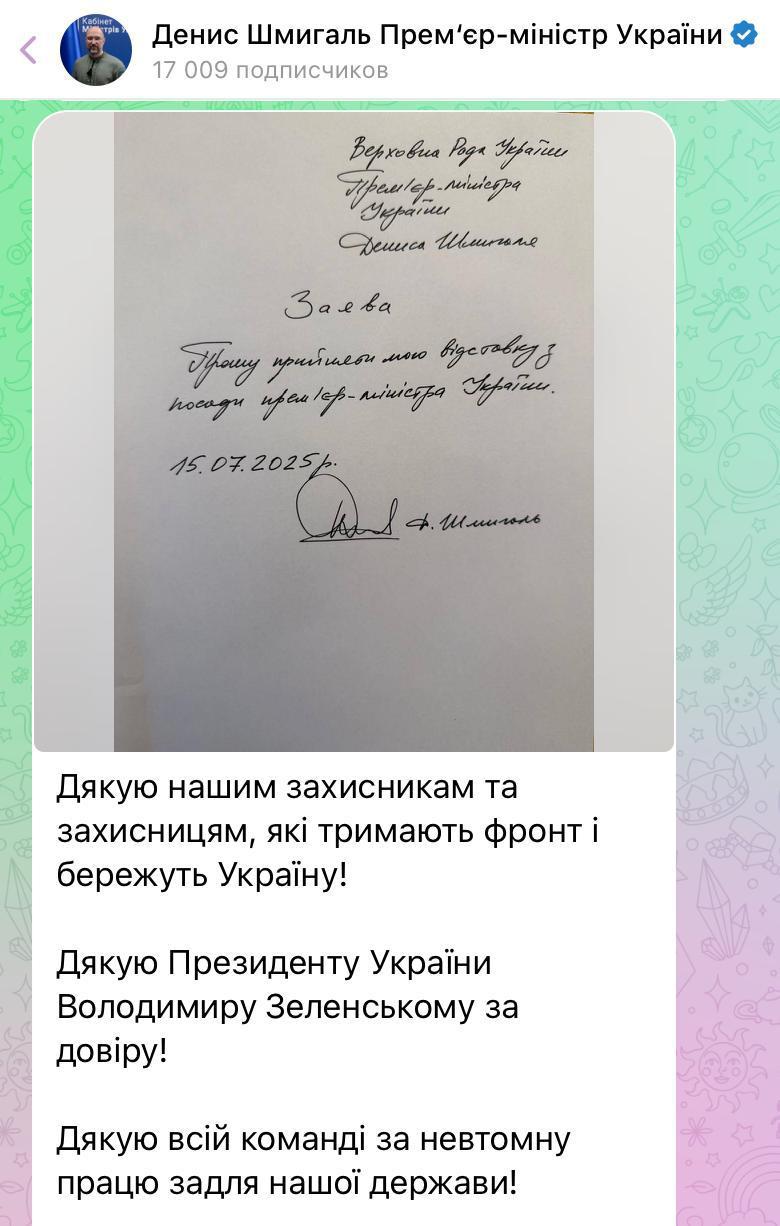 Кабінет
Міністрів У
Денис Шмигаль Прем‘єр-міністр України
17 009 подписчиков
Верховна Рада України
Прем'єр-міністра
України
Дениса Шмигаля
Заява
Прошу прийняти мою відставку з
посади прем'єр-міністра України.
15.07.2025р.
Д. Шмигаль
Дякую нашим захисникам та
захисницям, які тримають фронт і
бережуть Україну!
Дякую Президенту України
Володимиру Зеленському за
довіру!
Дякую всій команді за невтомну
працю задля нашої держави!